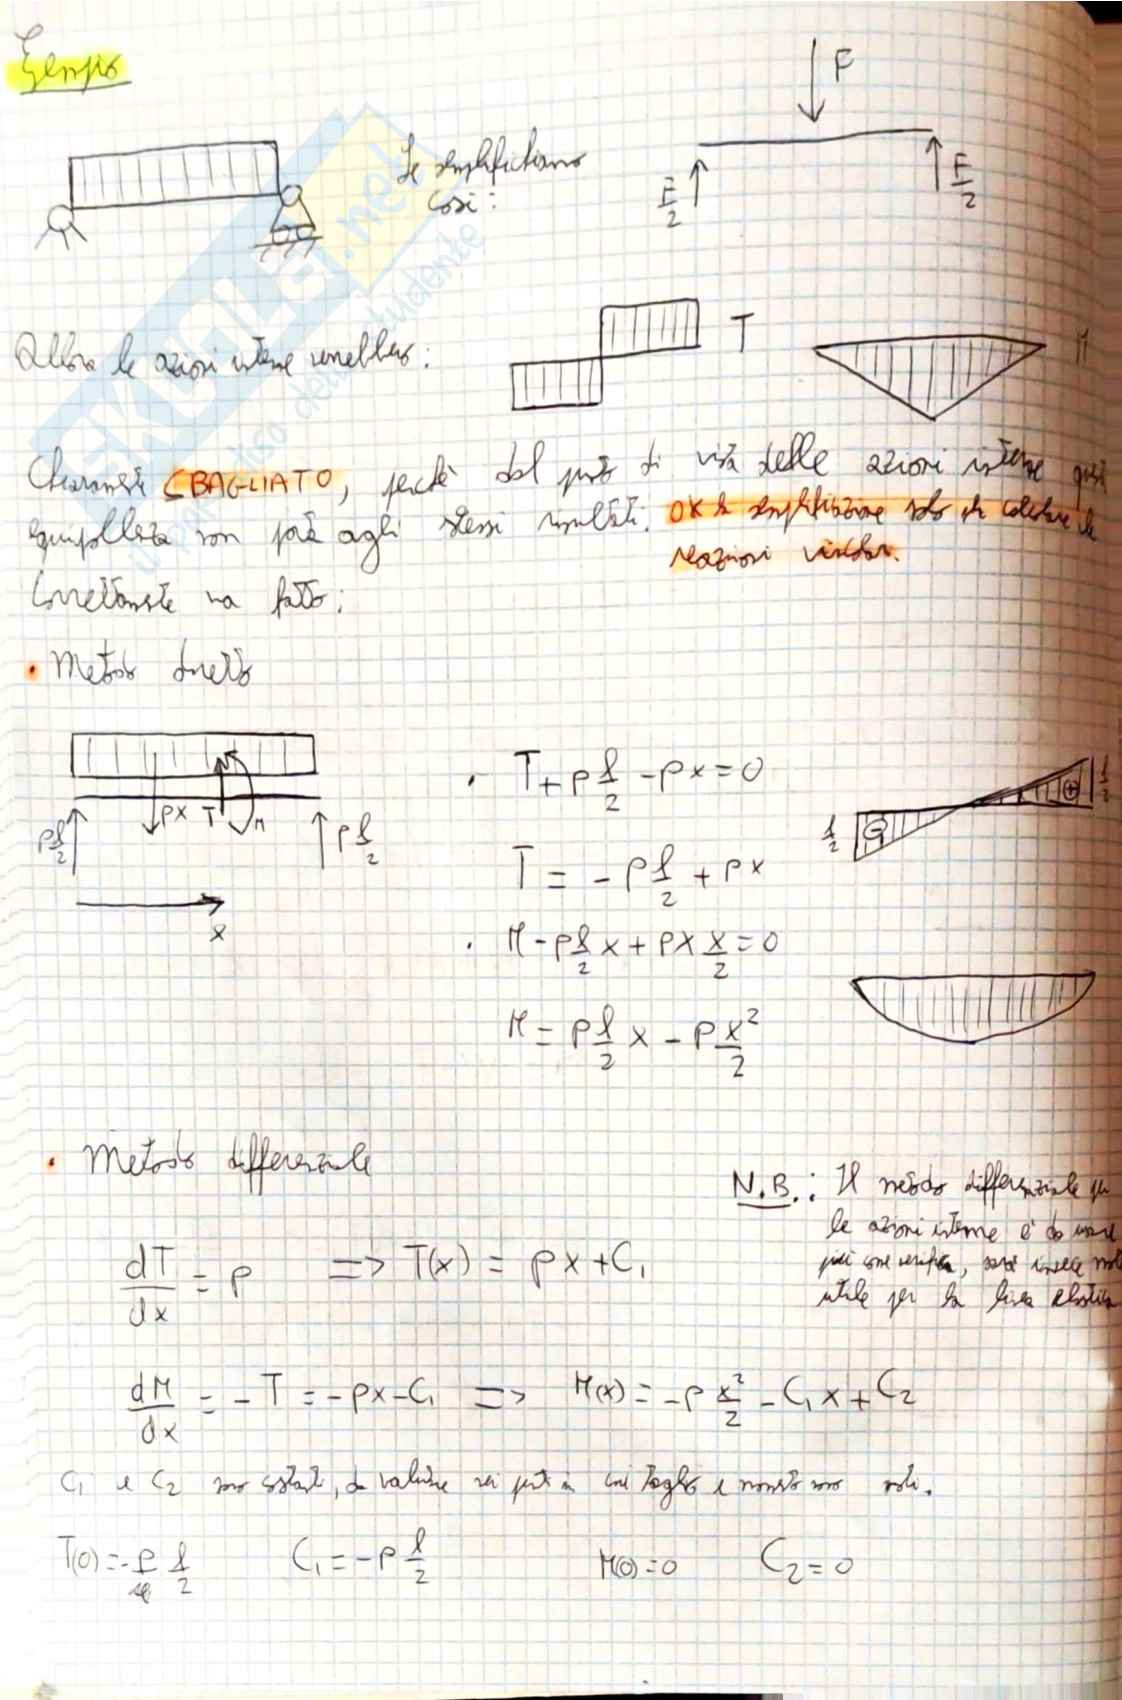 Esempio
F
Se semplifichiamo
così:
F/2
F/2
Allora le azioni interne sarebbero:
T
M
Chiaramente SBAGLIATO, perché dal punto di vista delle azioni interne
equipollenza non porta agli stessi risultati. OK la semplificazione solo per calcolare le
reazioni vincolari.
Correttamente va fatto:
• Metodo diretto
pl/2
px
T
M
pl/2
x
• T + p l/2 - px = 0
T = - p l/2 + px
• M - p l/2 x + px x/2 = 0
M = p l/2 x - p x²/2
l/2
l/2
• Metodo differenziale
N.B.: Il metodo differenziale per
le azioni interne è da usare
più come verifica, sarà invece
utile per la linea elastica
dT/dx = p => T(x) = px + C₁
dM/dx = - T = - px - C₁ => M(x) = - p x²/2 - C₁x + C₂
C₁ e C₂ sono costanti, da valutare nei punti in cui taglio e momento sono noti.
T(0) = - p l/2 C₁ = - p l/2 M(0) = 0 C₂ = 0
SKUOLA.net